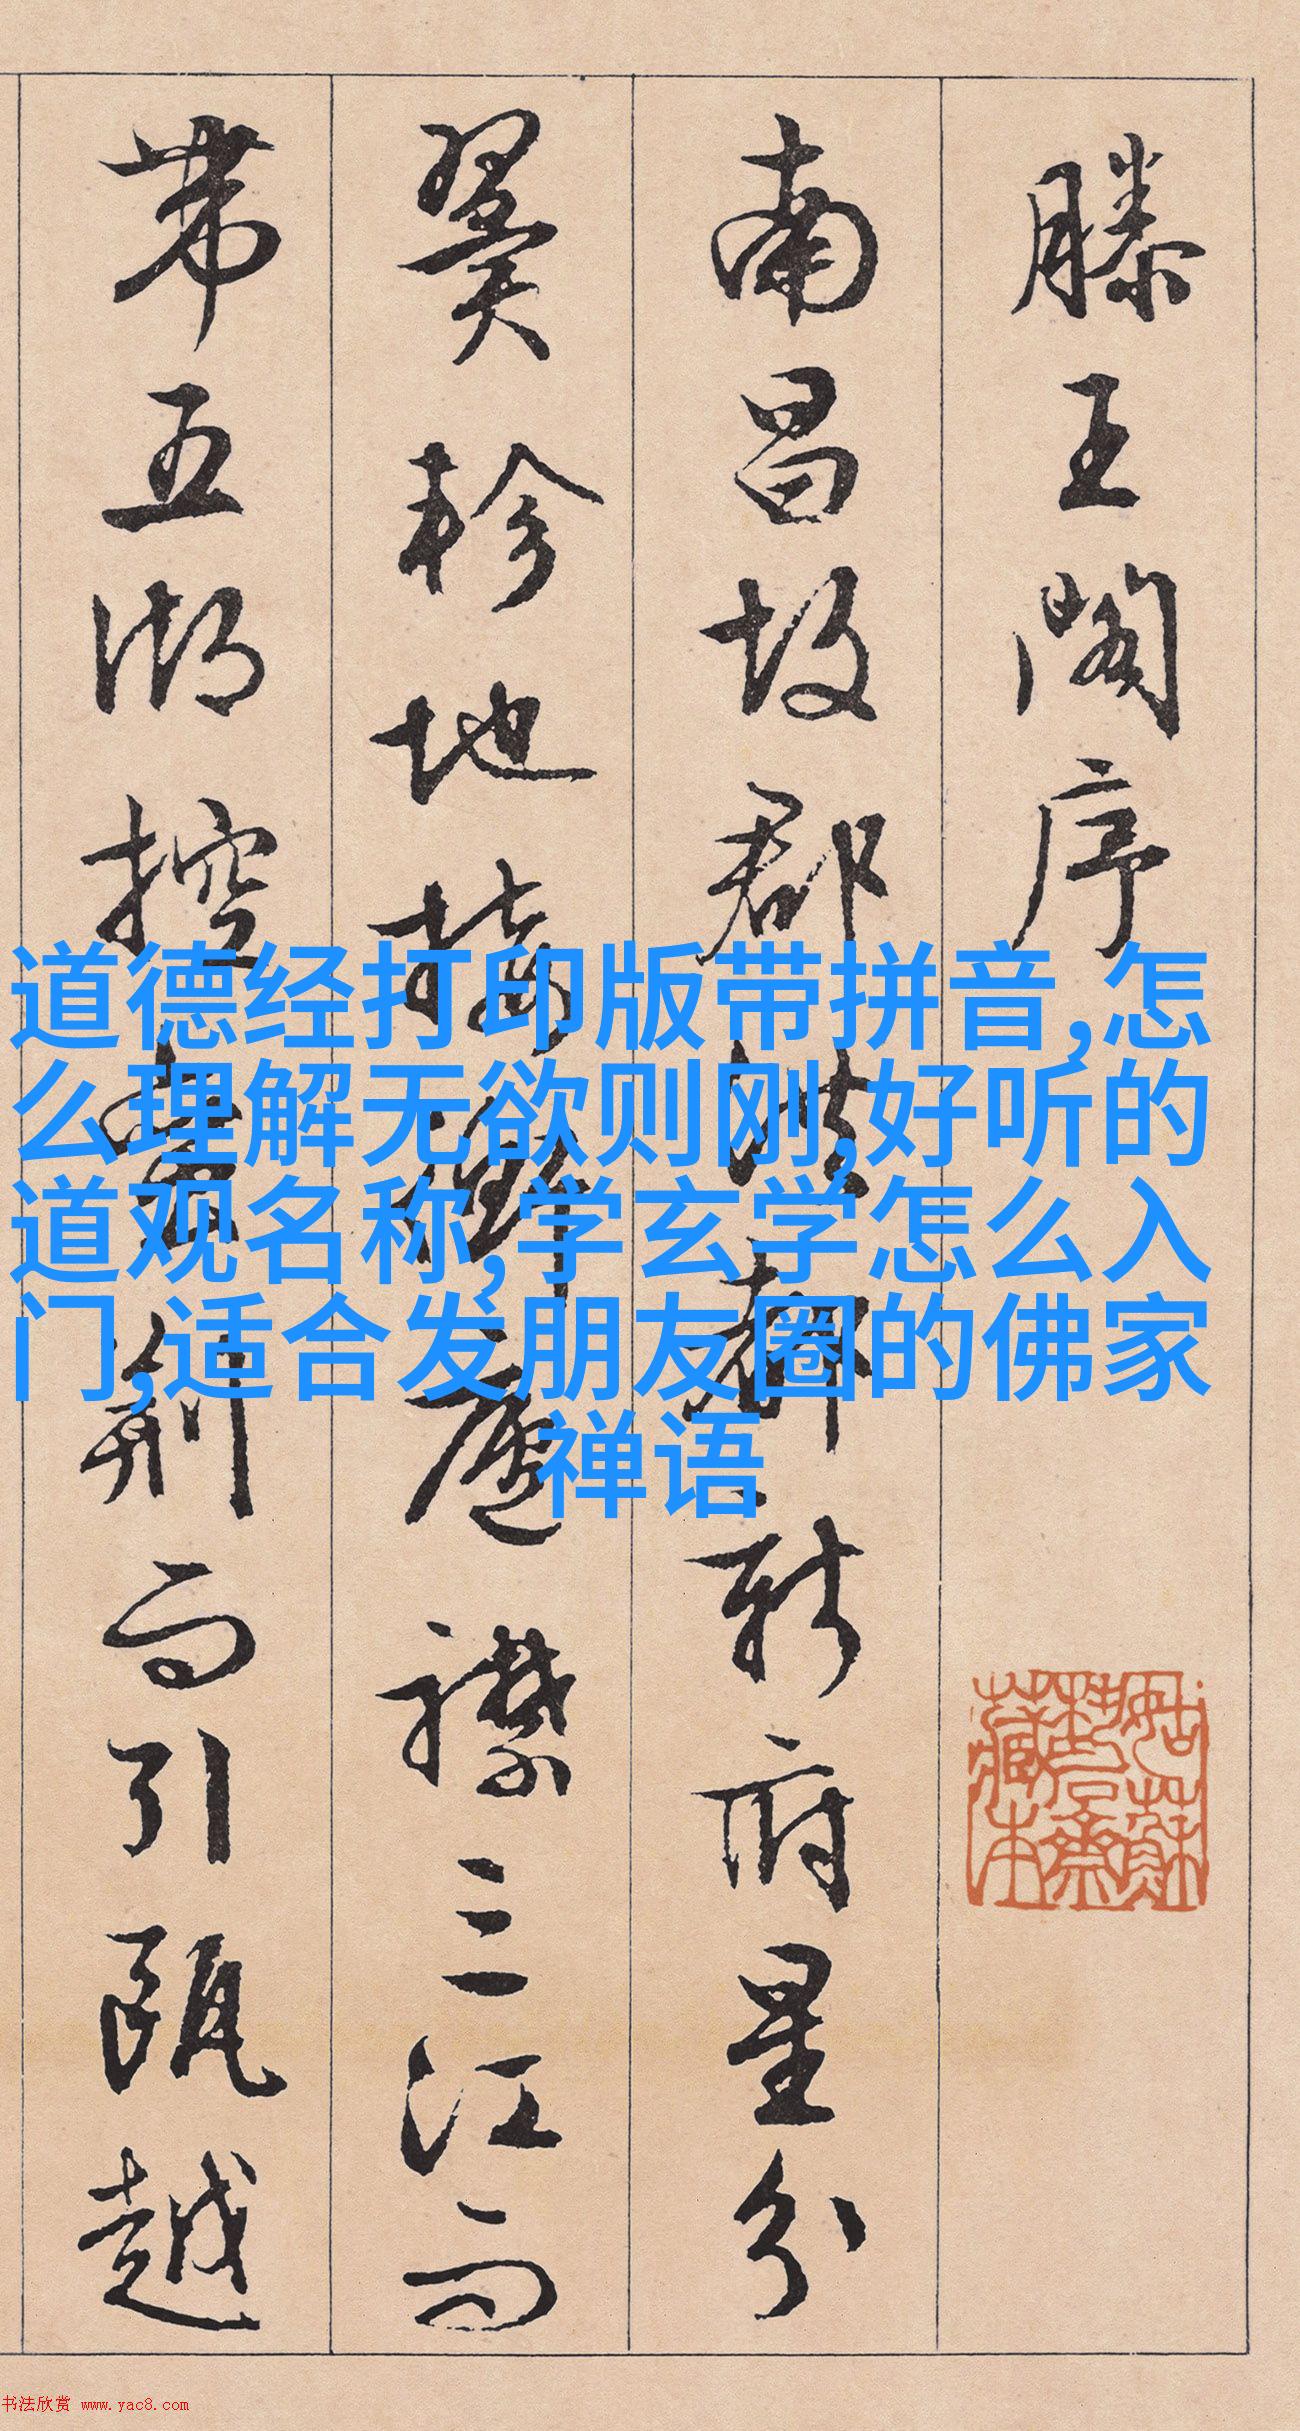 滕王閣序
南昌故郡洪都新府星分
翼軫地接衡廬襟三江而
帶五湖控蠻荆而引甌越
道德经打印版带拼音,怎
么理解无欲则刚,好听的
道观名称,学玄学怎么入
门,适合发朋友圈的佛家
禅语
书法欣赏 www.yac8.com